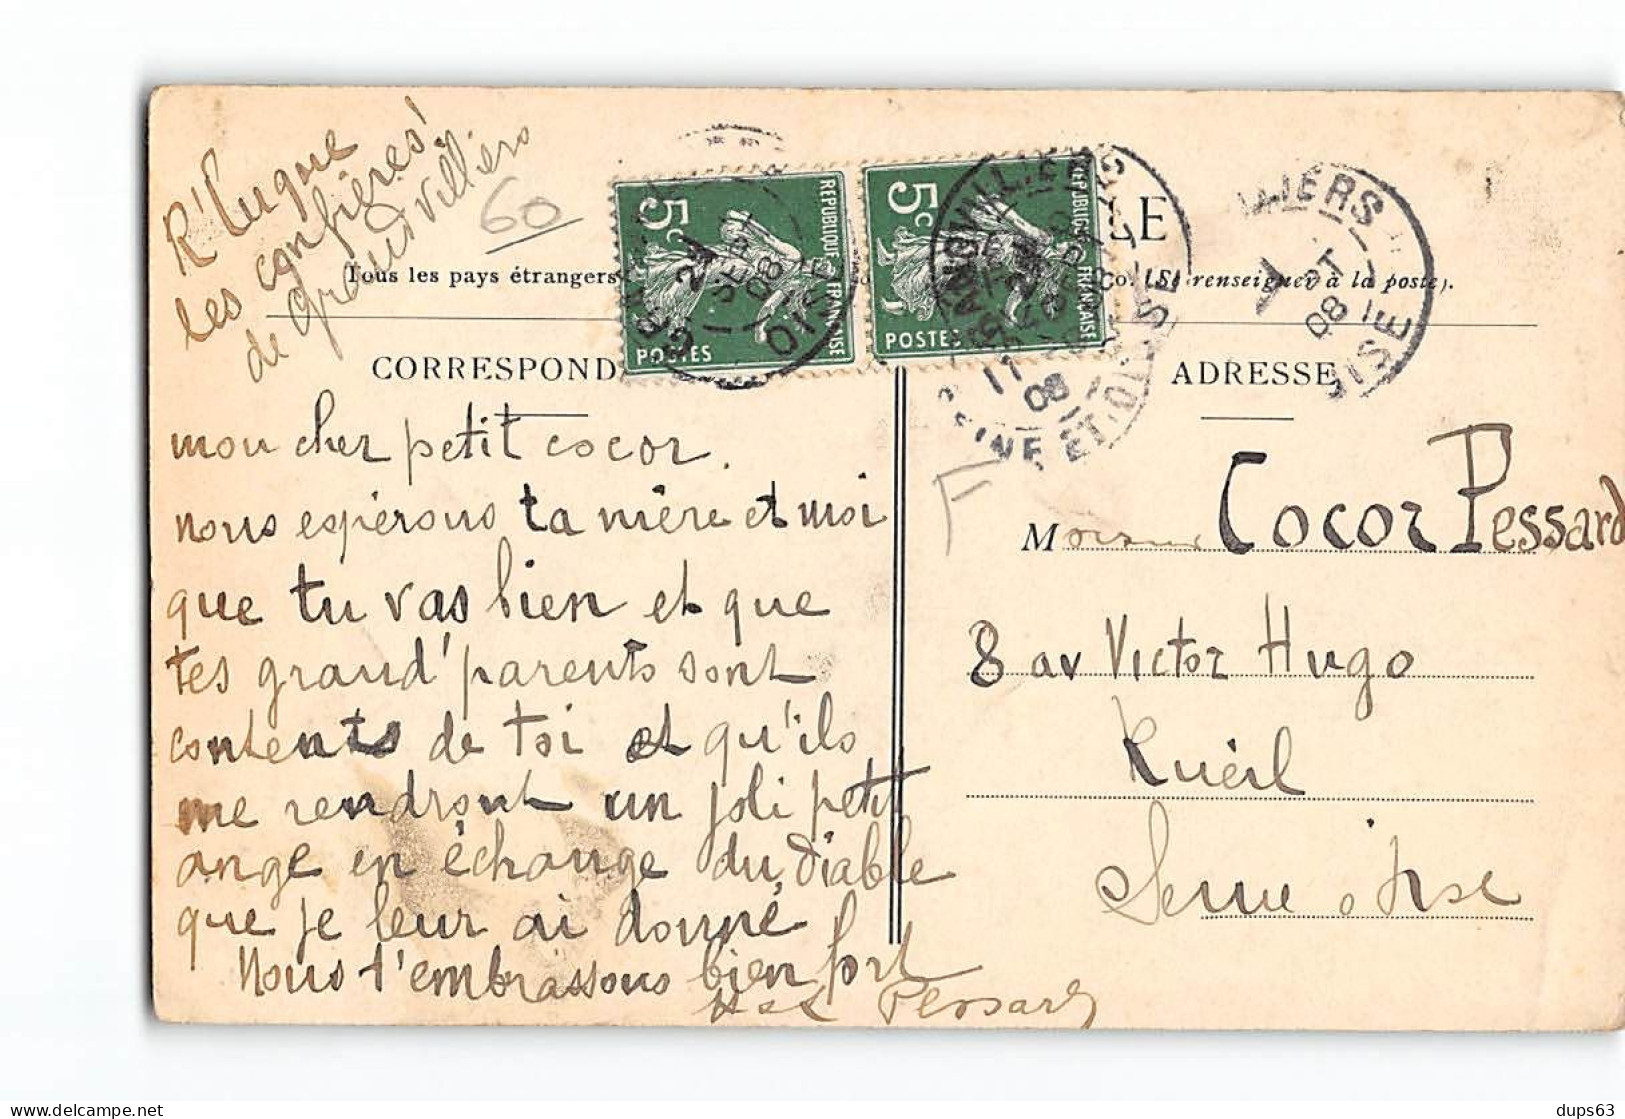 les confières
de grandvilliers
60
Tous les pays étrangers
co. (Se renseigner à la poste).
CORRESPOND
ADRESSE
REPUBLIQUE FRANÇAISE
5c
POSTES
REPUBLIQUE FRANÇAISE
5c
POSTES
OISE
SEPT
08
SEINE ET OISE
08
LLIERS
08
OISE
mon cher petit cocor.
nous espérons ta mère et moi
que tu vas bien et que
tes grand'parents sont
contents de toi et qu'ils
me rendront un joli petit
ange en échange du diable
que je leur ai donné
Nous t'embrassons bien fort
Pessard
Monsieur Cocor Pessard
8 av Victor Hugo
Rueil
Seine & Oise
delcampe.net
dups63